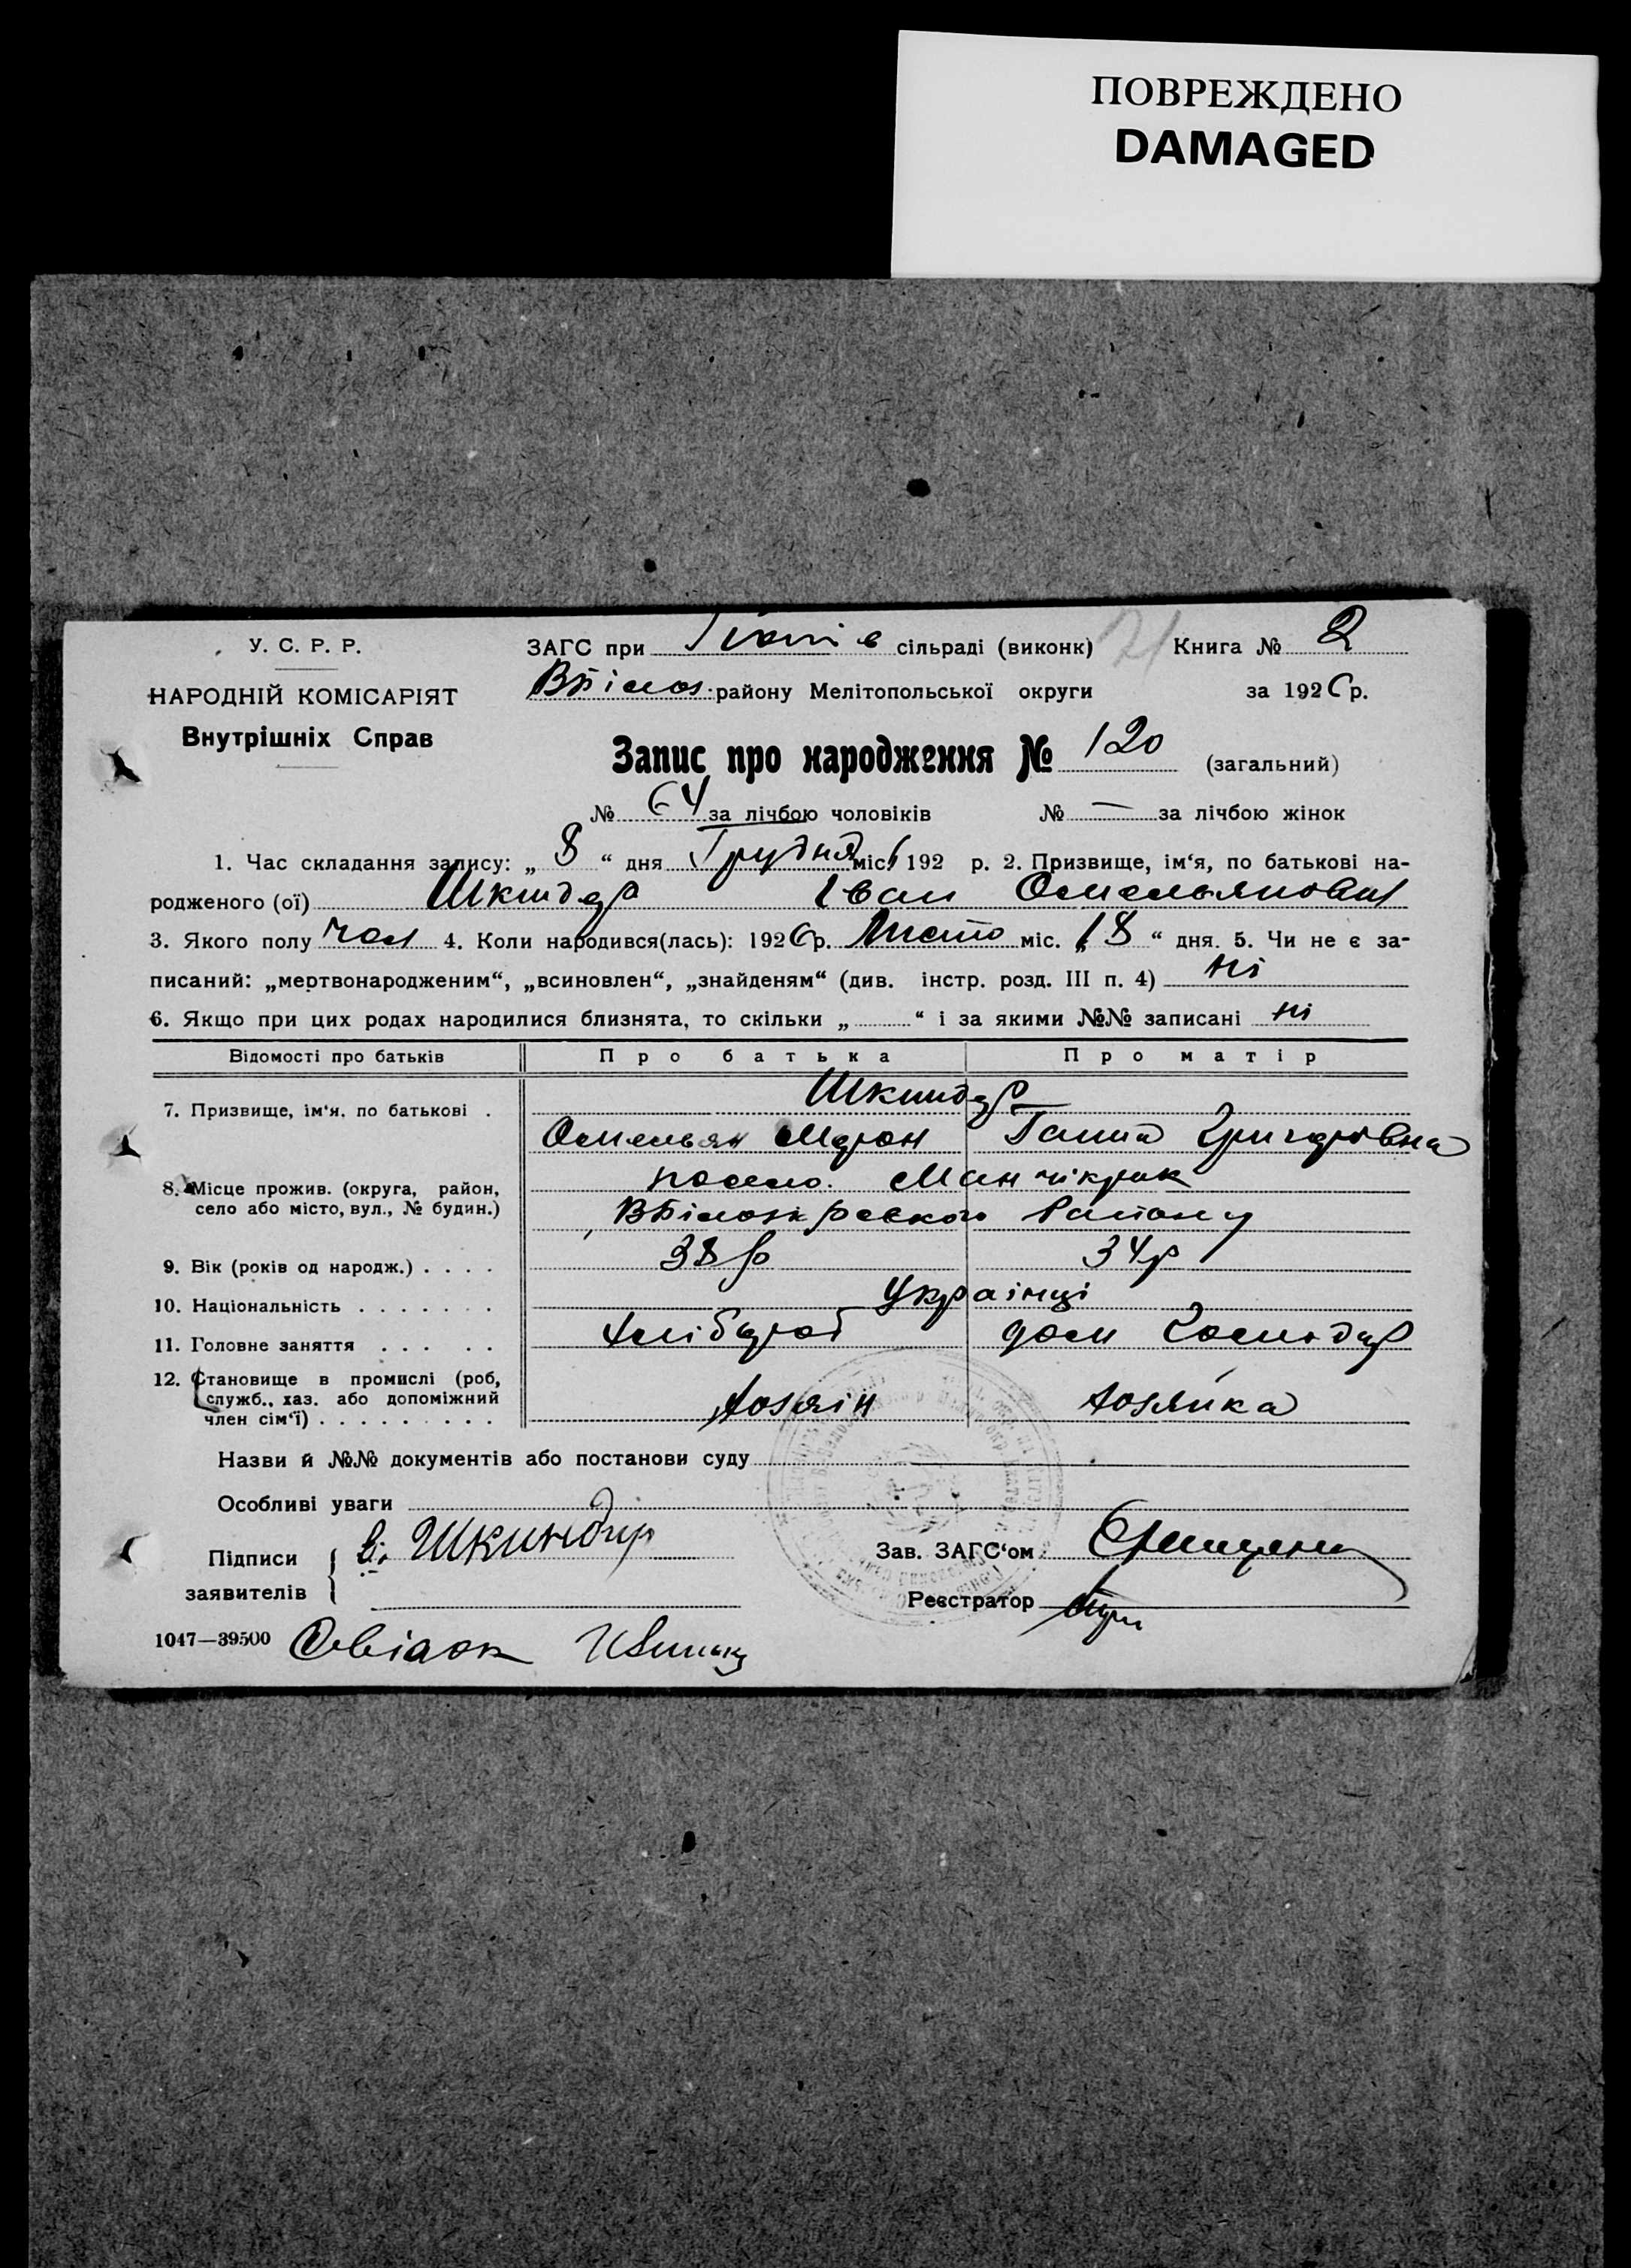 ПОВРЕЖДЕНО
DAMAGED
У. С. Р. Р.
НАРОДНІЙ КОМІСАРІЯТ
Внутрішніх Справ
ЗАГС при сільраді (виконк) 21 Книга № 2
району Мелітопольської округи за 1926 р.
Запис про народження № 120 (загальний)
№ 64 за лічбою чоловіків № — за лічбою жінок
1. Час складання запису: „ 8 “ дня Грудня міс. 192 р. 2. Призвище, ім‘я, по батькові на-
родженого (ої) Шкиндер Іван Омельянович
3. Якого полу чол 4. Коли народився(лась): 1926 р. Листо міс. „18 “ дня. 5. Чи не є за-
писаний: „мертвонародженим“, „всиновлен“, „знайденям“ (див. інстр. розд. III п. 4) ні
6. Якщо при цих родах народилися близнята, то скільки „ “ і за якими №№ записані ні
Відомості про батьків Про батька Про матір
7. Призвище, ім‘я, по батькові . Шкиндер
Омельян Ганна Григорівна
8. Місце прожив. (округа, район,
село або місто, вул., № будин.)
району
9. Вік (років од народж.) . . . . 38 р 34 р
10. Національність . . . . . . . Українці
11. Головне заняття . . . . . Хлібороб дом Господар
12. Становище в промислі (роб,
служб., хаз. або допоміжний
член сім‘ї) . . . . . . . . . Хозяін Хозяйка
Назви й №№ документів або постанови суду
Особливі уваги
Підписи
заявителів
Шкиндир
Зав. ЗАГС‘ом
Реєстратор
1047—39500